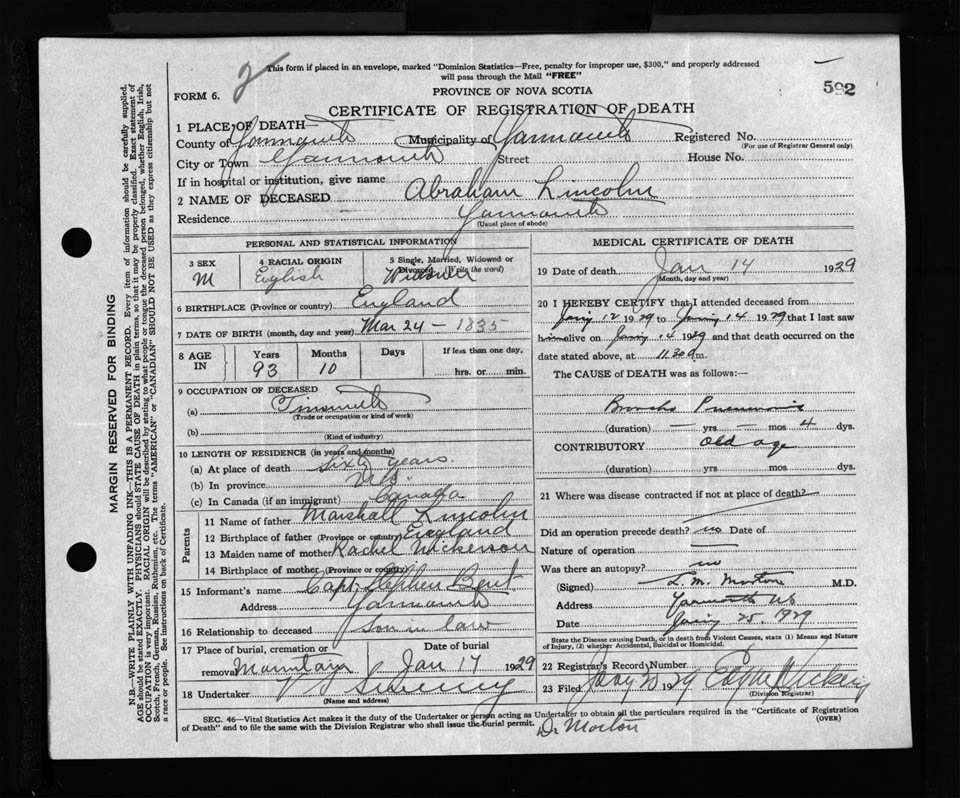 This form if placed in an envelope, marked "Dominion Statistics—Free, penalty for improper use, $300," and properly addressed
will pass through the Mail "FREE"
592
FORM 6.
2
PROVINCE OF NOVA SCOTIA
CERTIFICATE OF REGISTRATION OF DEATH
1 PLACE OF DEATH—
County of Yarmouth Municipality of Yarmouth Registered No.
(For use of Registrar General only)
City or Town Yarmouth Street House No.
If in hospital or institution, give name
2 NAME OF DECEASED Abraham Lincoln
Residence Yarmouth
(Usual place of abode)
PERSONAL AND STATISTICAL INFORMATION
3 SEX 4 RACIAL ORIGIN 5 Single, Married, Widowed or
Divorced (Write the word)
M English Widower
6 BIRTHPLACE (Province or country) England
7 DATE OF BIRTH (month, day and year) Mar 24 - 1835
8 AGE IN Years Months Days If less than one day,
93 10 hrs. or min.
9 OCCUPATION OF DECEASED
(a) Tinsmith
(Trade or occupation or kind of work)
(b)
(Kind of industry)
10 LENGTH OF RESIDENCE (in years and months)
(a) At place of death Sixty years.
(b) In province N.S.
(c) In Canada (if an immigrant) Canada
Parents
11 Name of father Marshall Lincoln
12 Birthplace of father (Province or country) England
13 Maiden name of mother Rachel Nickerson
14 Birthplace of mother (Province or country)
15 Informant's name Capt. Stephen Bent
Address Yarmouth
16 Relationship to deceased Son in law
17 Place of burial, cremation or Date of burial
removal Mountain Jan 17 1929
18 Undertaker V S Sweeny
(Name and address)
MEDICAL CERTIFICATE OF DEATH
19 Date of death Jan 14 1929
(Month, day and year)
20 I HEREBY CERTIFY that I attended deceased from
Jany 12 1929 to Jany 14 1929 that I last saw
him alive on Jany 14 1929 and that death occurred on the
date stated above, at 11.30 a m.
The CAUSE of DEATH was as follows:—
Broncho Pneumonia
(duration) — yrs — mos 4 dys.
CONTRIBUTORY Old age
(duration) yrs mos dys.
21 Where was disease contracted if not at place of death?
Did an operation precede death? no Date of
Nature of operation
Was there an autopsy? no
(Signed) L. M. Morton M.D.
Address Yarmouth NS
Date Jany 25, 1929
State the Disease causing Death, or in death from Violent Causes, state (1) Means and Nature
of Injury, (2) whether Accidental, Suicidal or Homicidal.
22 Registrar's Record Number
23 Filed Jany 1929
(Division Registrar)
SEC. 46—Vital Statistics Act makes it the duty of the Undertaker or person acting as Undertaker to obtain all the particulars required in the "Certificate of Registration
of Death" and to file the same with the Division Registrar who shall issue the burial permit. (OVER)
Dr Morton
MARGIN RESERVED FOR BINDING
N.B.—WRITE PLAINLY WITH UNFADING INK—THIS IS A PERMANENT RECORD. Every item of information should be carefully supplied.
AGE should be stated EXACTLY. PHYSICIANS should STATE CAUSE OF DEATH in plain terms, so that it may be properly classified. Exact statement of
OCCUPATION is very important. RACIAL ORIGIN will be described by stating to what people or tongue the deceased person belonged, whether English, Irish,
Scotch, French, German, Russian, Ruthenian, etc. The terms "AMERICAN" or "CANADIAN" SHOULD NOT BE USED as they express citizenship but not
a race or people. See instructions on back of Certificate.